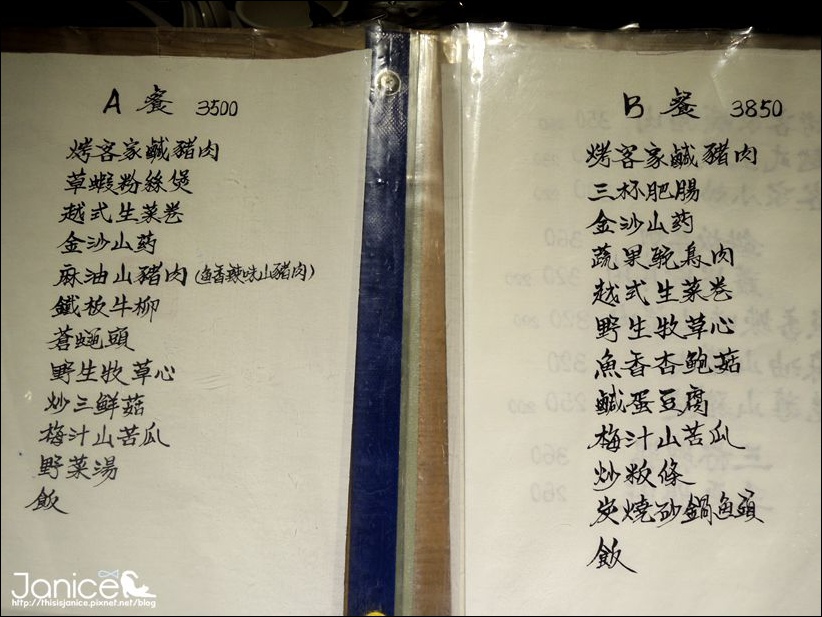 A餐 3500
烤客家鹹豬肉
草蝦粉絲煲
越式生菜卷
金沙山药
麻油山豬肉(鱼香辣味山豬肉)
鐵板牛柳
蒼蠅頭
野生牧草心
炒三鮮菇
梅汁山苦瓜
野菜湯
飯
B餐 3850
烤客家鹹豬肉
三杯肥腸
金沙山药
蔬果鴕鳥肉
越式生菜卷
野生牧草心
魚香杏鮑菇
鹹蛋豆腐
梅汁山苦瓜
炒粄條
炭燒砂鍋魚頭
飯
Janice
http://thisisjanice.pixnet.net/blog